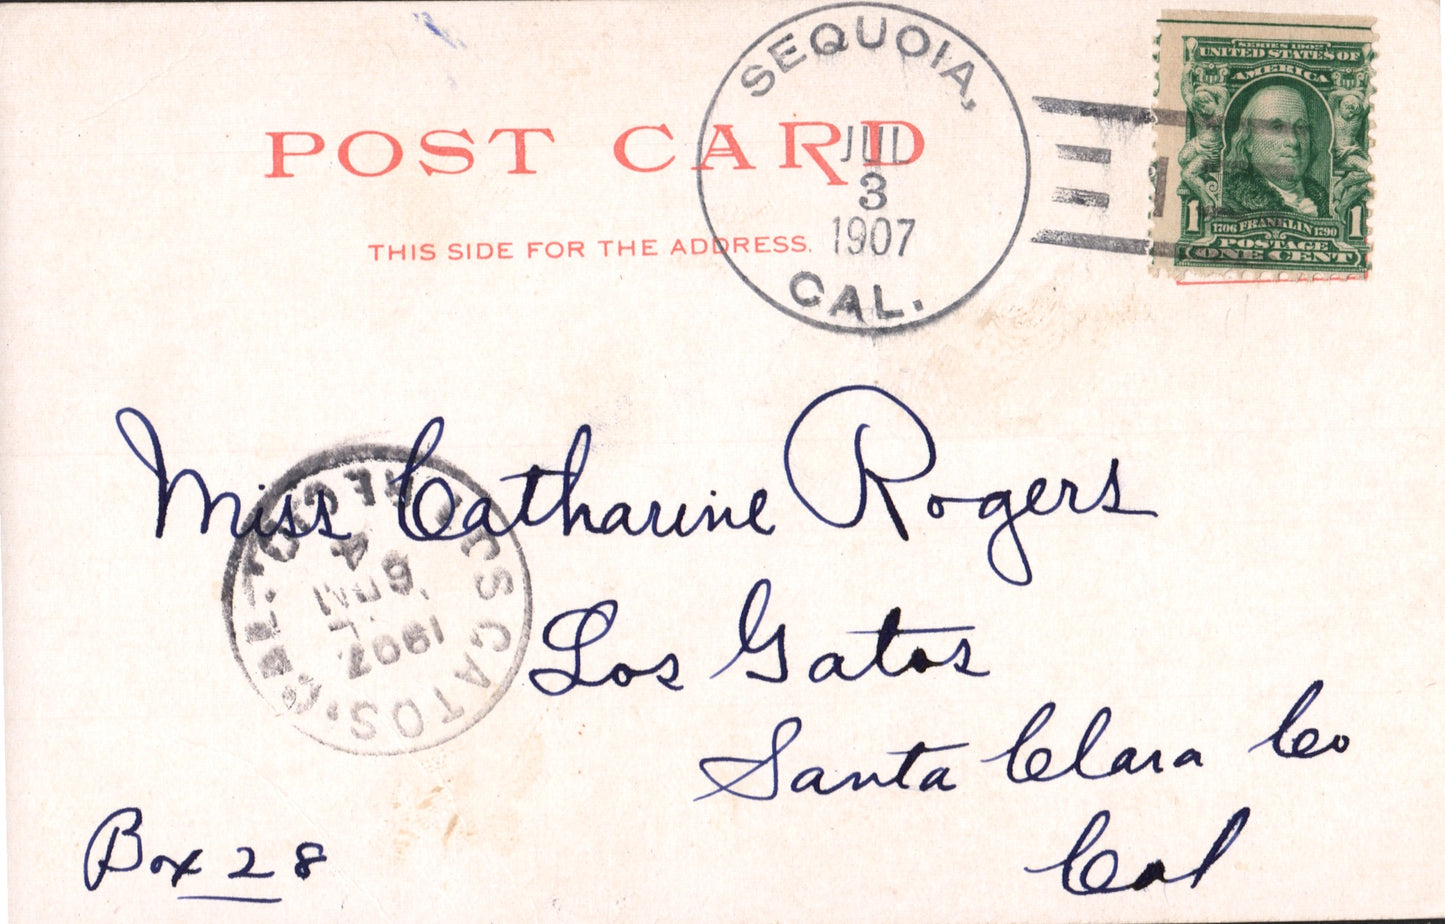 POST CARD
THIS SIDE FOR THE ADDRESS.
SEQUOIA,
JUL
3
1907
CAL.
SERIES 1902
UNITED STATES OF
AMERICA
1 1706 FRANKLIN 1790 1
POSTAGE
ONE CENT
1
Miss Catharine Rogers
Los Gatos
Santa Clara Co
Cal
Box 28
GATOS, CAL.
REC'D.
4
6 PM
1907